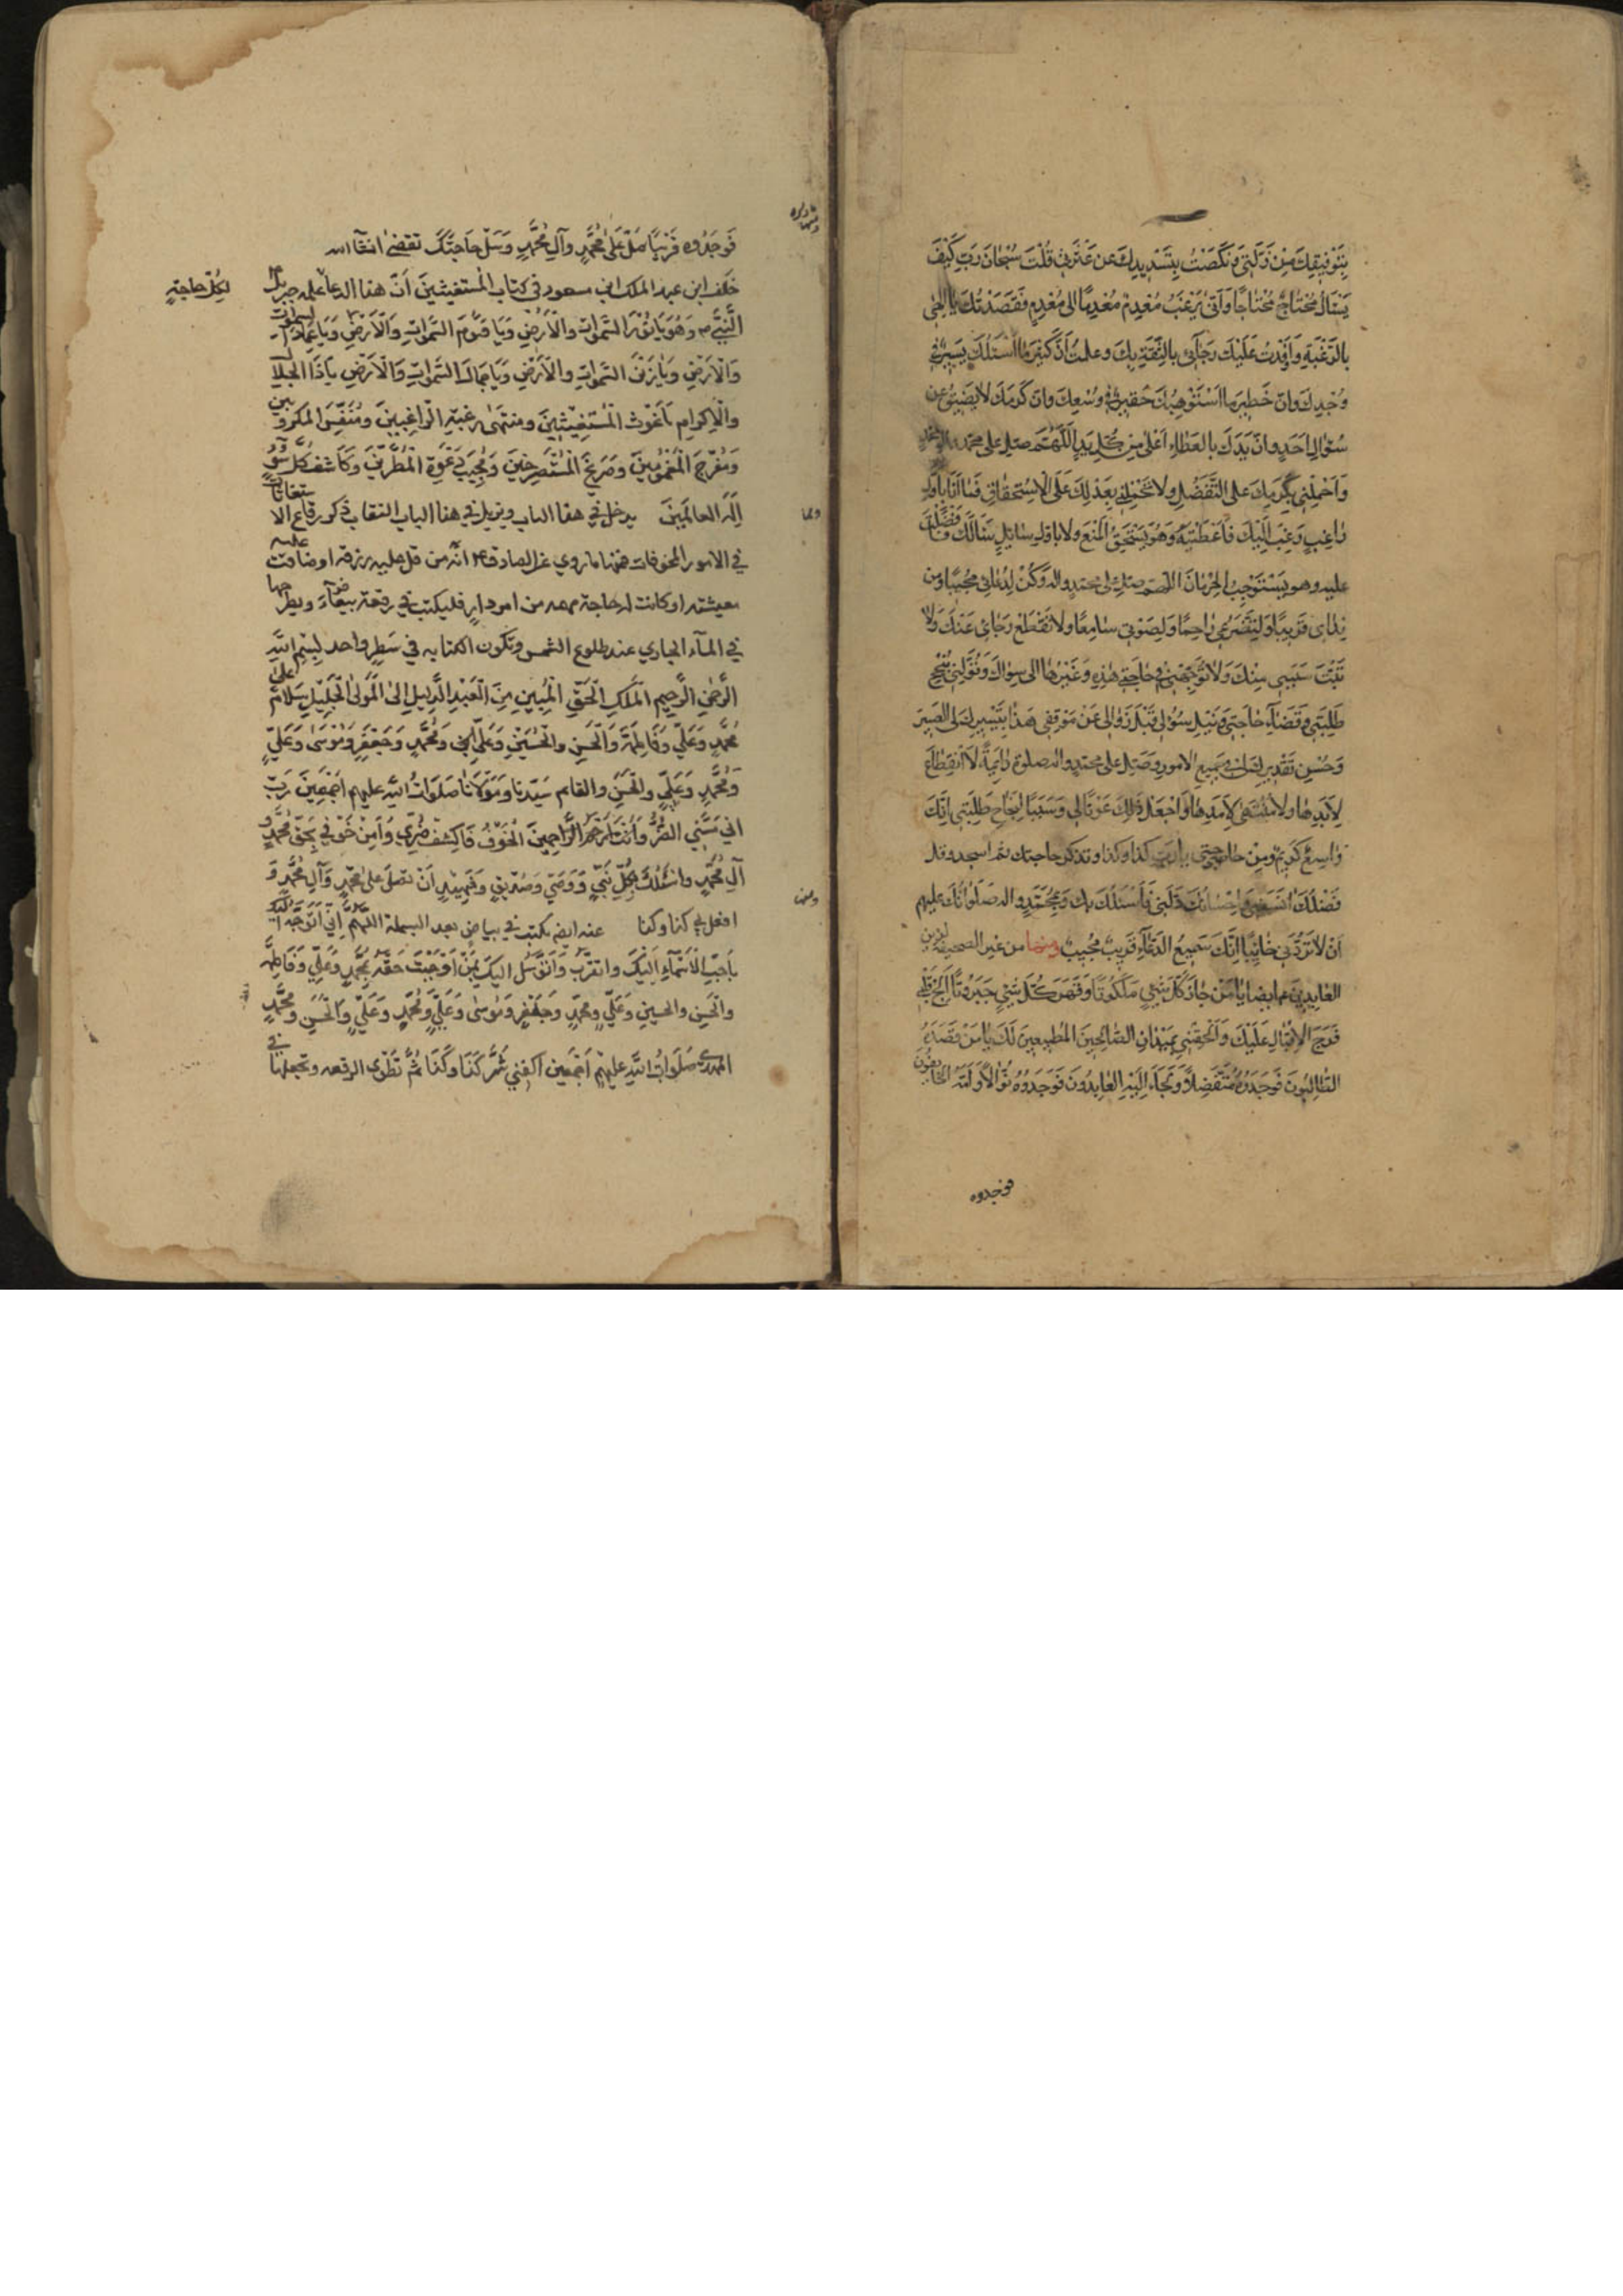 بِتَوْفِيقِكَ مِنْ زَلَّتِي وَنَكَصْتُ بِتَسْدِيدِكَ عَنْ عَثْرَتِي قُلْتُ سُبْحَانَ رَبِّي كَيْفَ
يَسْأَلُ مُحْتَاجٌ مُحْتَاجًا وَأَنّى يَرْغَبُ مُعْدِمٌ مُعْدِمًا الى مُعْدِمٍ فَقَصَدْتُكَ يَا اِلٰهِى
بِالرَّغْبَةِ وَأَوْفَدْتُ عَلَيْكَ رَجَائي بِالثِّقَةِ بِكَ وعلمتُ أَنَّ كَثِيرَ مَا أَسْئَلُكَ يَسِيرٌ فِي
وُجْدِكَ وَانّ خَطِيرَ مَا اَسْتَوْهِبُكَ حَقِيرٌ فِي وُسْعِكَ وَانّ كَرَمَكَ لَا يَضِيقُ عَن
سُؤَالِ اَحَدٍ وانّ يَدَكَ بِالعَطَاءِ اَعْلىٰ مِن كُلِّ يَدٍ اَللّٰهُمَّ صلّ على محمد وال محمد
وَاحْمِلْنِي بِكَرَمِكَ عَلى التَّفَضُّلِ وَلَا تَحْمِلْنِي بِعَدْلِكَ عَلَى الْاِسْتِحْقَاقِ فَمَا اَنَا بِاَوَّلِ
رَاغِبٍ رَغِبَ اِلَيْكَ فَأَعْطَيْتَهُ وَهُوَ يَسْتَحِقُّ الْمَنْعَ وَلَا بِاَوَّلِ سَائِلٍ سَأَلَكَ فَأَفْضَلْتَ
عليه وهو يَسْتَوْجِبُ الْحِرْمَانَ اللّهمّ صلّ على محمّد واله وَكُنْ لِدُعَائي مُجِيبًا وَمِن
نِدَائي قَرِيبًا وَلِتَضَرُّعِي رَاحِمًا وَلِصَوْتِي سَامِعًا وَلَا تَقْطَعْ رَجَائي عَنْكَ وَلَا
تَبُتَّ سَبَبِي مِنْكَ وَلَا تُوَجِّهْنِي فِي حَاجَتِي هٰذِهِ وَغَيْرِهَا اِلى سِوَاكَ وَتَوَلَّنِي بِنُجْحِ
طَلِبَتِي وَقَضَاءِ حَاجَتِي وَنَيْلِ سُؤْلِي قَبْلَ زَوَالِي عَنْ مَوْقِفِي هٰذَا بِتَيْسِيرِكَ لي العَسِيرَ
وَحُسْنِ تَقْدِيرِكَ لي في جَمِيعِ الامور وَصَلِّ على محمّد واله صلوةً دَائِمَةً لَا انْقِطَاعَ
لِاَبَدِهَا وَلَا مُنْتَهىٰ لِاَمَدِهَا وَاجْعَلْ ذٰلِكَ عَوْنًا لِي وَسَبَبًا لِنَجَاحِ طَلِبَتِي اِنَّكَ
وَاسِعٌ كَرِيمٌ وَمِنْ حَاجَتِي يا رَبِّ كذا وكذا وتذكر حاجتك ثم اسجد وقل
فَضْلُكَ اٰنَسَنِي وَاِحْسَانُكَ دَلَّنِي فَأَسْئَلُكَ بِكَ وَبِمُحَمَّدٍ واله صَلَوَاتُكَ عليهم
اَنْ لَا تَرُدَّنِي خَائِبًا اِنَّكَ سَمِيعُ الدُّعَاءِ قَرِيبٌ مُجِيبٌ ومنها من غير الصحيفة لزين
العابدين ع ايضا يَا مَنْ حَازَ كُلَّ شَيْءٍ مَلَكُوتًا وَقَهَرَ كُلَّ شَيْءٍ جَبَرُوتًا
فَرَحَ الْاِقْبَالِ عَلَيْكَ وَاَلْحِقْنِي بِمَيْدَانِ الصَّالِحِينَ الْمُطِيعِينَ لَكَ يَا مَنْ قَصَدَهُ
الطَّالِبُونَ فَوَجَدُوهُ مُتَفَضِّلًا وَلَجَاَ اِلَيْهِ العَابِدُونَ فَوَجَدُوهُ نَوَّالًا وَاَمَّهُ الْخَائِفُونَ
فوجدوه
فَوَجَدُوه قَرِيبًا صَلِّ عَلىٰ مُحَمَّدٍ وَآلِ مُحَمَّدٍ وَسَلْ حَاجَتَكَ تقضىٰ انشآ الله
خلف ابن عبد الملك ابن مسعود في كتاب المستغيثين اَنّ هذا الدعا علمه جبريل
لكلّ حاجةٍ
النَّبيّ ص وَهُوَ يَا نُوْرَ السَّمٰوات وَالْاَرْضِ وَيَا قَيُّومَ السَّمٰواتِ وَالْاَرْضِ وَيَا عِمَادَ السمٰوات
وَالْاَرْضِ وَيَا زَيْنَ السَّمٰواتِ وَالْاَرْضِ وَيَا جَمَالَ السَّمٰواتِ وَالْاَرْضِ يَا ذَا الْجَلَالِ
وَالْاِكْرامِ يَا غَوْثَ الْمُسْتَغِيْثِينَ وَمنتهىٰ رغبةِ الرَّاغِبِينَ وَمُنَفِّسَ الْمَكْرُوبِينَ
وَمُفَرِّجَ الْمَغْمُوْمِينَ وَصَرِيْخَ الْمُسْتَصْرِخِينَ وَمُجِيبَ دَعْوَةِ الْمُضْطَرِّيْنَ وَكَاشفَ كلّ سُوْءٍ
اِلٰهَ العالَمِيْنَ يدخل في هذا الباب ويزيل في هذا الباب النقاب ذكر رقاع الاستغاثات
في الامور المخوفات فمنها ما روي عن الصادق ع انّه من قلّ عليه رزقه او ضاقت عليه
معيشته او كانت له حاجة مهمه من امور داره فليكتب في رقعة بيضآء ويطرحها
في المآء الجاري عند طلوع الشمس وتكون الكتابه في سَطرٍ واحد بِسْمِ اللّه
الرَّحْمٰنِ الرَّحِيمِ الْمَلَكِ الْحَقِّ الْمُبِينِ مِنَ الْعَبْدِ الذَّلِيلِ اِلىٰ الْمَوْلىٰ الْجَلِيْلِ سَلَامٌ علىٰ
مُحَمَّدٍ وَعَلِيٍّ وَفَاطِمَةَ وَالْحَسَنِ وَالْحُسَيْنِ وَعَلِيٍّ وَمُحَمَّدٍ وَجَعْفَرٍ وَمُوْسىٰ وَعَلِيٍّ
وَمُحَمَّدٍ وَعَلِيٍّ وَالْحَسَنِ والقائم سَيِّدِنا وَمَوْلَانَا صَلَوَاتُ اللّه عليهم اَجْمَعِينَ رَبِّ
اني مَسَّني الضُّرُّ وَاَنْتَ اَرْحَمُ الرَّاحِمِينَ الْخَوْفُ فَاكْشِفْ ضُرِّي وَآمِنْ خَوْفي بِحَقِّ مُحَمَّدٍ وَ
آلِ مُحَمَّدٍ واسْئَلُكَ بِكُلِّ نَبِيٍّ وَوَصِيٍّ وَصِدِّيقٍ وَشَهِيْدٍ اَنْ تصلّي علىٰ مُحَمّدٍ وَآلِ مُحَمَّدٍ وَ
افعل بي كذا وكذا عنه ايضه يكتب في بياض بعد البسملة اللّهُمَّ اِنّي اَتَوَجَّهُ اليك
بِاَحَبِّ الْاَسْمَآءِ اِلَيْكَ واتقرّبُ وَاَتَوَسَّلُ اليكَ بِمَنْ اَوْجَبْتَ حَقَّهُ بِمُحَمَّدٍ وَعَلِيٍّ وَفَاطِمَةَ
وَالْحَسَنِ والحسينِ وَعَلِيٍّ وَمُحَمَّدٍ وَجَعْفَرٍ وَمُوسىٰ وَعَلِيٍّ وَمُحَمَّدٍ وَعَلِيٍّ وَالْحَسَنِ ومُحَمَّدٍ
المهدي صَلَوَاتُ اللّهِ عليهِمْ اَجْمَعِينَ اكفني شَرَّ كَذَا وَكَذَا ثُمَّ تَطْوِى الرقعه وتجعلها في